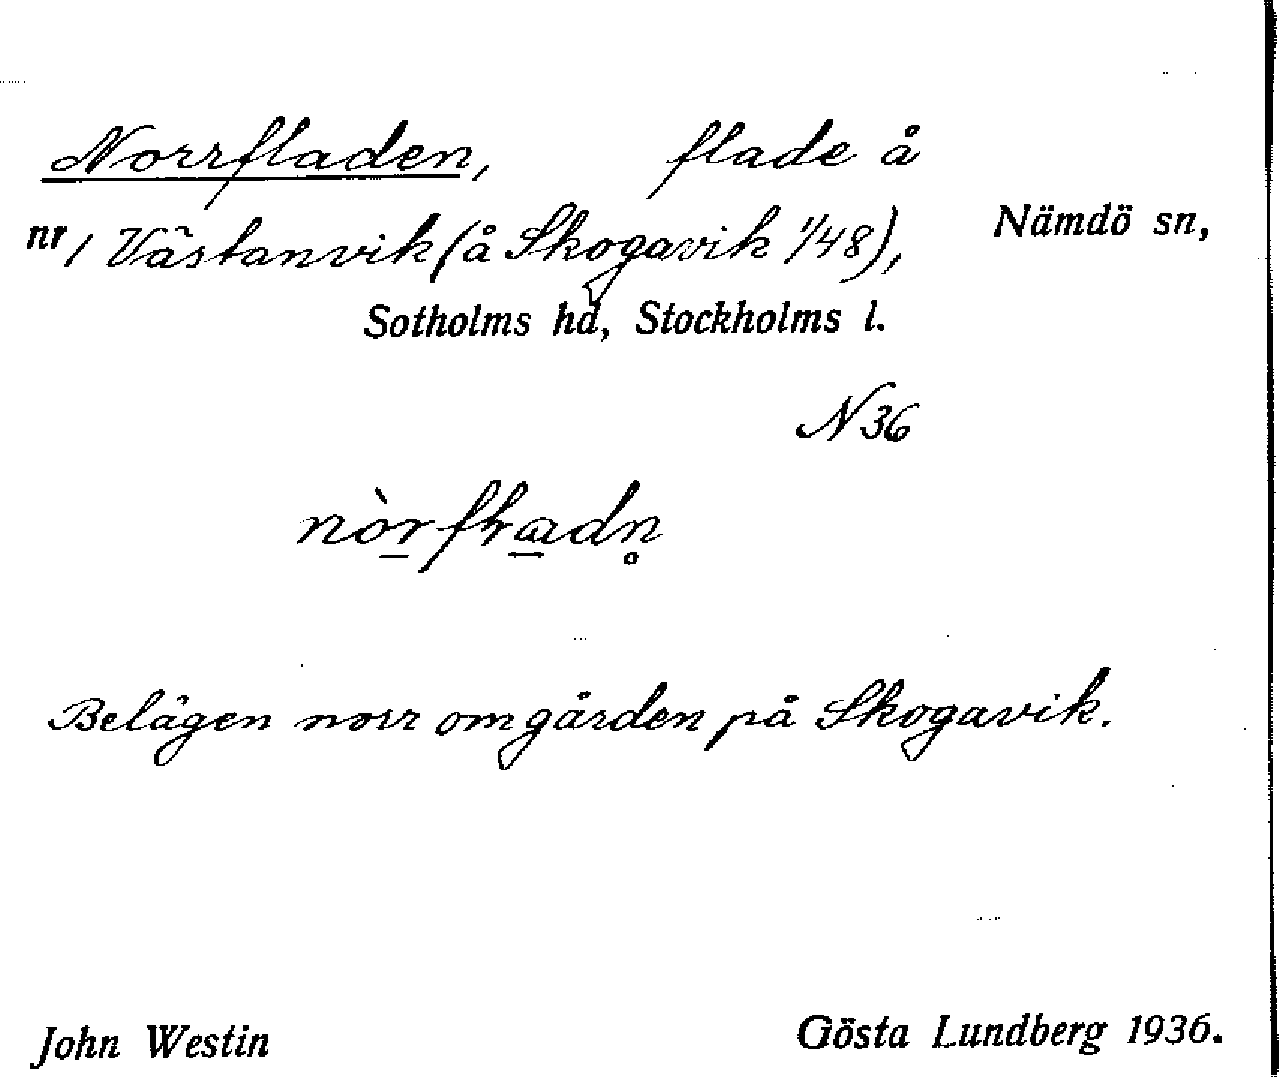 Norrfladen, flade å
nr 1 Västanvik (å Skogavik 1/48), Nämdö sn,
Sotholms hd, Stockholms l.
N 36
Belägen norr om gården på Skogavik.
John Westin Gösta Lundberg 1936.